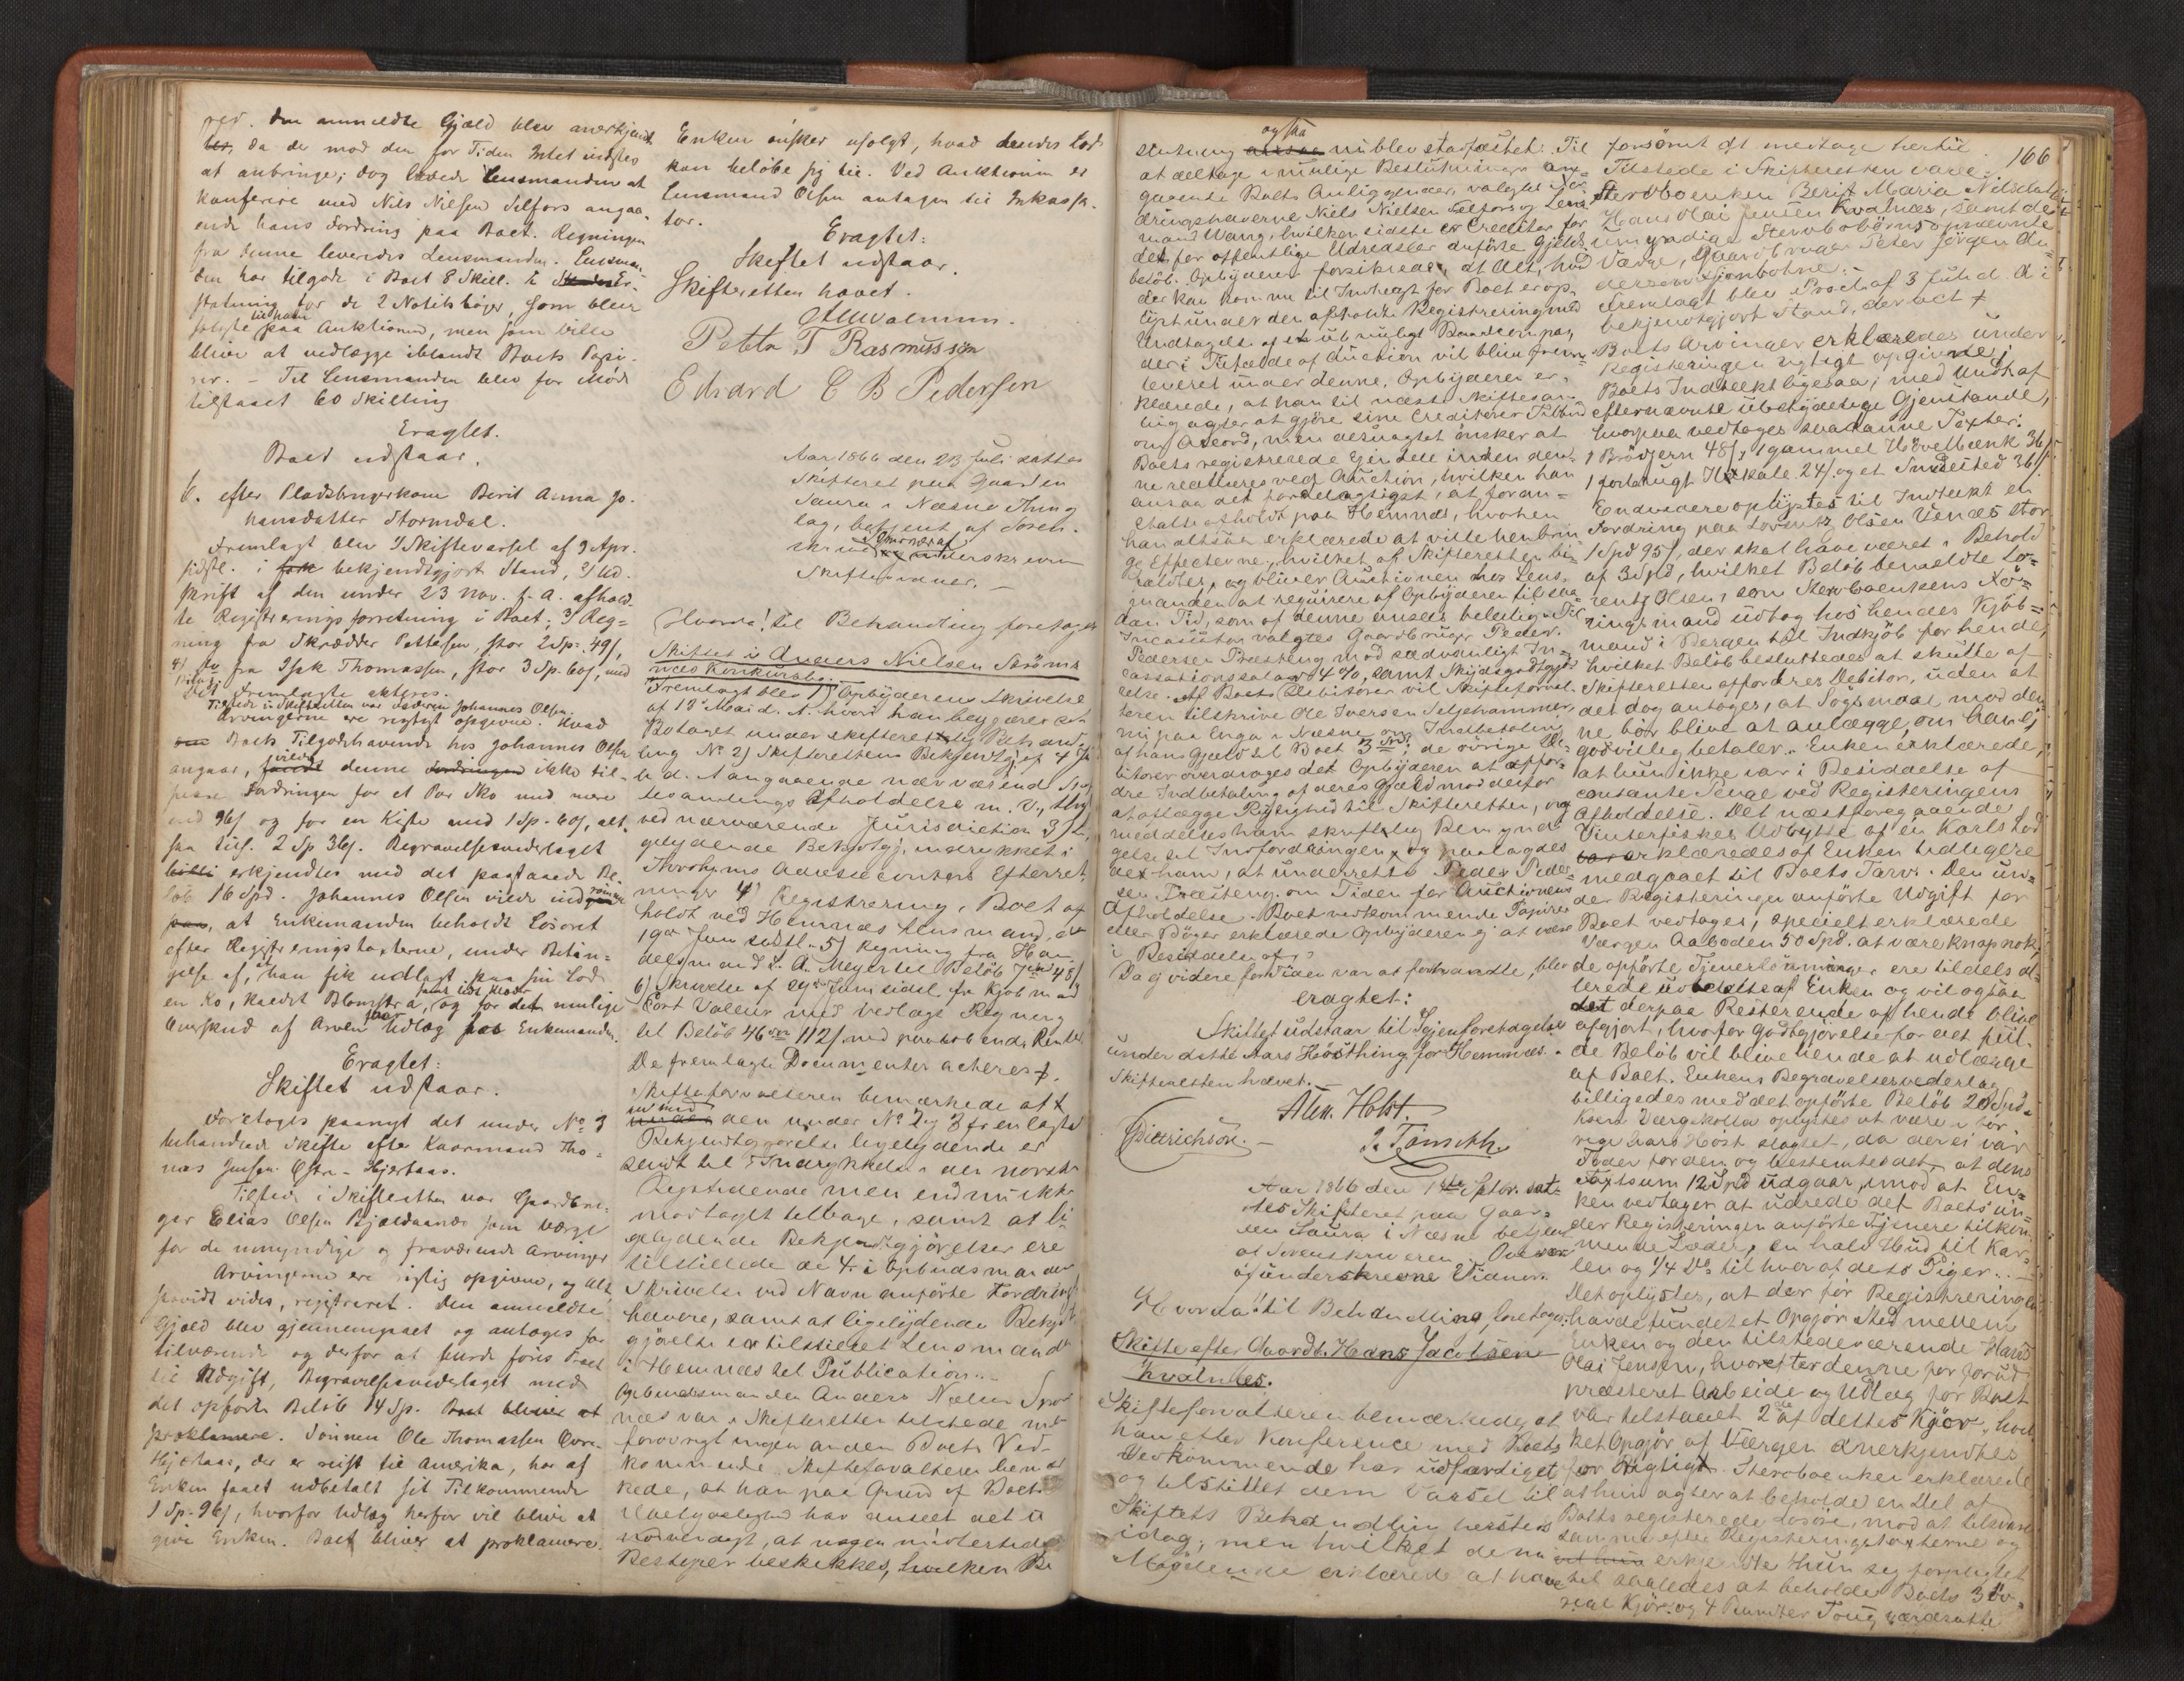 ved. Den anmeldte Gjæld blev anerkjendt
da der mod den for Tiden Intet indsees
at anbringe; dog lovede Lensmanden at
konferere med Nils Nielsen Selfors angaa-
ende hans Fordring paa Boet. Regningen
fra denne leveredes Lensmanden. Lensman-
den har tilgode i Boet 8 Skill. i Er-
statning for de 2 Notitsbøger, som blev
solgte til ham paa Auktionen, men som ville
blive at vedlægge iblandt Boets Papi-
rer. - Til Lensmanden blev for Møde
tilstaaet 60 Skilling
Eragtet.
Boet udstaar.
6. efter Pladsbrugerkone Berit Anna Jo-
hansdatter Stormdal.
Fremlagt blev 1/ Skiftevarsel af 9 Apr.
sidstl. i bekjendtgjort Stand, 2/ Ud-
skrift af den under 23 Nov. f. A. afhold-
te Registreringsforretning i Boet; 3/ Reg-
ning fra Skrædder Pettersen, stor 2 Sp. 49 s,
4/ do fra Isak Thomassen, stor 3 Sp. 60 s, med
Fremlagte akteres.
Tilstede i Skifteretten var Johannes Olsen.
Arvingerne ere rigtigt opgivne. Hvad
Boets Tilgodehavende hos Johannes Olsen
angaar, vilde denne ikke til-
Fordringen for et Par Sko med mere
end 96 s og for en Kiste med 1 Sp. 60 s, alt-
saa tils. 2 Sp 36 s. Begravelsesvederlaget
erkjendtes med det paastaaede Be-
løb 16 Spd. Johannes Olsen vilde indrømme
at Enkemanden beholdt Løsøret
efter Registreringstaxterne, under Betin-
gelse af, at han fik udlagt paa sin Lod
en Ko, kaldet Blomstra, og for det mulige
Overskud af Arven faar Udlæg Enkemanden.
Eragtet:
Skiftet udstaar.
Foretoges paanyt det under No 3
behandlede Skifte efter Kaarmand Tho-
mas Jensen Øfre-Hjertaas.
Tilstede i Skifteretten var Gaardbru-
ger Elias Olsen Bjældaanes som Værge
for de umyndige og fraværende Arvinger
Arvingerne ere rigtig opgivne, og alt,
saavidt vides, registreret. Den anmeldte
Gjæld blev gjennemgaaet og antoges for
tilværende og derfor at burde føres Boet
til Udgift, Begravelsesvederlaget med
det opførte Beløb 14 Sp. Boet bliver at
proklamere. Sønnen Ole Thomassen Øvre-
Hjertaas, der er reist til Amerika, har af
Enken faaet udbetalt sit Tilkommende
1 Sp. 96 s, hvorfor Udlæg herfor vil blive at
give Enken. Boet bliver at proklamere.
Enken ønsker usolgt, hvad hendes Lod
kan beløbe sig til. Ved Auktionen er
Lensmand Olsen antagen til Inkassa-
tor.
Eragtet:
Skiftet udstaar.
Skifteretten hævet.
Petter T Rasmussen
Edvard C B Pedersen
Aar 1866 den 23 Juli sattes
Skifteret paa Gaarden
Saura i Næsne Thing
lag, betjent af Soren-
skriveren underskrevne
Skiftevidner. -
Hvorda! til Behandling foretoges
Skiftet i Anders Nielsen Strøms
næs Konkursbo.
Fremlagt blev 1) Opbyderens Skrivelse
af 18de Mai d. A. hvori han begjærer
Botaget under skifteretslig Behand-
ling No 2) Skifterettens Bekjendtgj. af 4 Juni
d. A angaaende nærværende Skif-
tesamlings Afholdelse m. v.,
ved nærværende Jurisdiction 3/ Li-
gelydende Bekjdtgj. indrykket i
Throhjems Adressecontors Efterret-
ninger 4) Registrering i Boet af-
holdt ved Hemnæs Lensmand
19de Juni sidstl. 5) Regning fra Han-
delsmand L. A. Meyer til Beløb 7 Spd 48 s
6) Skrivelse af 29de Juni sidstl. fra Kjøbmand
Cort Valeur med vedlagt Regning
til Beløb 46 Spd 112 s med paaløbende Renter
De fremlagte Documenter acteres.
Skifteforvalteren bemærkede at
den under No 2 og 3 fremlagte
Bekjendtgjørelse ligelydende er
sendt til Indrykkelse i den norske
Rigstidende men endnu ikke
modtaget tilbage, samt at li-
gelydende Bekjendtgjørelser ere
tilstillede de 4 i Opbudsmandens
Skrivelse ved Navn anførte Fordrings-
havere, samt at ligelydende Bekjendt-
gjørelse er tilstillet Lensmanden
i Hemnæs til Publication.
Opbudsmanden Anders Nielsen Strøm-
næs var i Skifteretten tilstede men
forøvrigt ingen anden Boets Ved-
kommende. Skifteforvalteren bemær-
kede, at han paa Grund af Boets
har anseet det
nødvendigt, at nogen midlertidig
Bestyrer beskikkes, hvilken Be
slutning ogsaa nu blev stadfæstet. Til
at deltage i mulige Beslutninger an-
gaaende Boets Anliggender, valgtes For-
dringshaverne Niels Nielsen Selfors og Lens-
mand Wang, hvilken sidste er Creditor for
det for offentlige Udredsler anførte Gjelds-
beløb. Opbyderen forsikrede, at Alt, hvad
der kan komme til Indtægt for Boet er op-
lyst under den afholdte Registrering med
Undtagelse af et ubetydeligt
der i Tilfælde af Auction vil blive frem-
leveret under denne. Opbyderen er-
klærede, at han til næste Skiftesam-
ling agter at gjøre sine Creditorer Tilbud
om Accord, men desuagtet ønsker at
Boets registrerede Eiendele inden den-
ne realiseres ved Auction, hvilken han
ansaa det fordelagtigst, at foran-
stalte afholdt paa Hemnæs, hvorhen
han altsaa erklærede at ville henbrin
ge Effecterne, hvilket af Skifteretten bi-
faldtes, og bliver Auctionen hos Lens-
manden at requirere af Opbyderen til saa-
dan Tid, som af denne ansees beleilig. Til
Incassator valgtes Gaardbruger Peder
Pedersen Præsteng mod sædvanligt In-
cassationssalair 4 %, samt Skydsgodtgjø-
relse. Af Boets Debitorer vil Skifteforval-
teren tilskrive Ole Iversen Seljehammer,
nu paa Enga i Næsne om Indbetaling
af hans Gjæld til Boet 3 Spd; de øvrige De-
bitorer overdrages det Opbyderen at affor-
dre Indbetaling af deres Gjæld mod derfor
at aflægge Rigtighed til Skifteretten, og
meddeles ham skriftlig Bemyndi-
gelse til Indfordringen, og paalagdes
det ham, at underrette Peder Peder-
sen Præsteng om Tiden for Auctionens
Afholdelse. Boet vedkommende Papirer
eller Bøger erklærede Opbyderen ej at være
i Besiddelse af.
Da ej videre for Tiden var at forhandle, blev
eragtet:
Skiftet udstaar til Igjenforetagelse
under dette Aars Høstthing for Hemnæs.
Skifteretten hævet. -
Alex. Holst.
Didrichson. -
J. Tønseth
Aar 1866 den 1ste Septbr. sat-
tes Skifteret paa Gaar-
den Saura i Næsne betjent
af Sorenskriveren
og underskrevne Vidner.
Hvorda! til Behandling foretoges:
Skifte efter Gaardb. Hans Jacobsen
Kvalnæs.
Skifteforvalteren bemærkede, at
han efter Konference med Boets
Vedkommende har udfærdiget
og tilstillet dem Varsel til
Skiftets Behandling hersteds
idag, men hvilket de nu
Mødende erklærede at have
166
forsømt at medtage hertil.
Tilstede i Skifteretten vare:
Stervboenken Berit Maria Nilsdatter
Hans Olai Jensen Kvalnæs, samt de
umyndige Stervbobørns opnævnte
Værge, Gaardbruger Peter Jørgen An-
dersen Sjonbotne.
Fremlagt blev Procl. af 3 Juli d. A i
bekjendtgjort Stand, der act
Boets Arvinger erklæredes under
Registeringen rigtigt opgivne;
Boets Indtækt ligesaa; med Undt. af
efternævnte ubetydelige Gjenstande,
hvorpaa vedtoges saadanne Taxter:
1 Brødjern 48 s, 1 gammel Høvelbænk 36 s
1 forbrugt 24 s. og et Smidested 36 s.
Endvidere oplystes til Indtækt en
Fordring paa Lorentz Olsen Venæs stor
1 Spd 95 s, der skal have været i Behold
af 3 Spd, hvilket Beløb benævnte Lo-
rentz Olsen, som Stervboenkens Næ-
ringsmand udtog hos hendes Kjøb-
mand i Bergen til Indkjøb for hende,
hvilket Beløb besluttedes at skulle af
Skifteretten affordres Debitor, uden at
det dog antages, at Søgsmaal mod den-
ne bør blive at anlægge, om han ej
godvillig betaler. Enken erklærede,
at hun ikke var i Besiddelse af
contante Penge ved Registeringens
Afholdelse. Det næstforegaaende
Vinterfiskes Udbytte af en Karls Lod
erklæredes af Enken tidligere
medgaaet til Boets Tarv. Den un-
der Registeringen anførte Udgift for
Boet vedtoges, specielt erklærede
Værgen Aaboden 50 Spd. at være knap nok,
de opførte Tjenerlønninger ere tildels al-
lerede udbetalte af Enken og vil ogsaa
det derpaa Resterende af hende blive
afgjort, hvorfor Godtgjørelse for det ful-
de Beløb vil blive hende at udlægge
af Boet. Enkens Begravelsesvederlag
billigedes med det opførte Beløb 20 Spd.
Koen Vargkolla oplystes at være i for-
rige Aars Høst slagtet, da der ej var
Foder for den og bestemtes det, at dens
Taxtsum 12 Spd udgaar, mod at En-
ken vedtager at udrede det Boets un-
der Registeringen anførte Tjenere tilkom-
mende Læder, en halv Hud til Kar-
len og 1/4 Do til hver af dets Piger. -
Det oplystes, at der før Registreringen
havde fundet et Opgjør Sted mellem
Enken og den tilstedeværende Hans
Olai Jensen, hvorefter denne for forud
præsteret Arbeide og Udlæg for Boet
var tilstaaet 2de af dettes Kjør, hvil-
ket Opgjør af Værgen anerkjendtes
for Rigtigt. Stervboenken erklærede
at hun agter at beholde en Del af
Boets registrerede Løsøre, mod at tilsvare
samme efter Registeringstaxterne og
erkjendte Hun sig forpligtet
til saaledes at beholde Boets 3 øv-
rige Kjør og 4 Bundter Toug, værdsatte